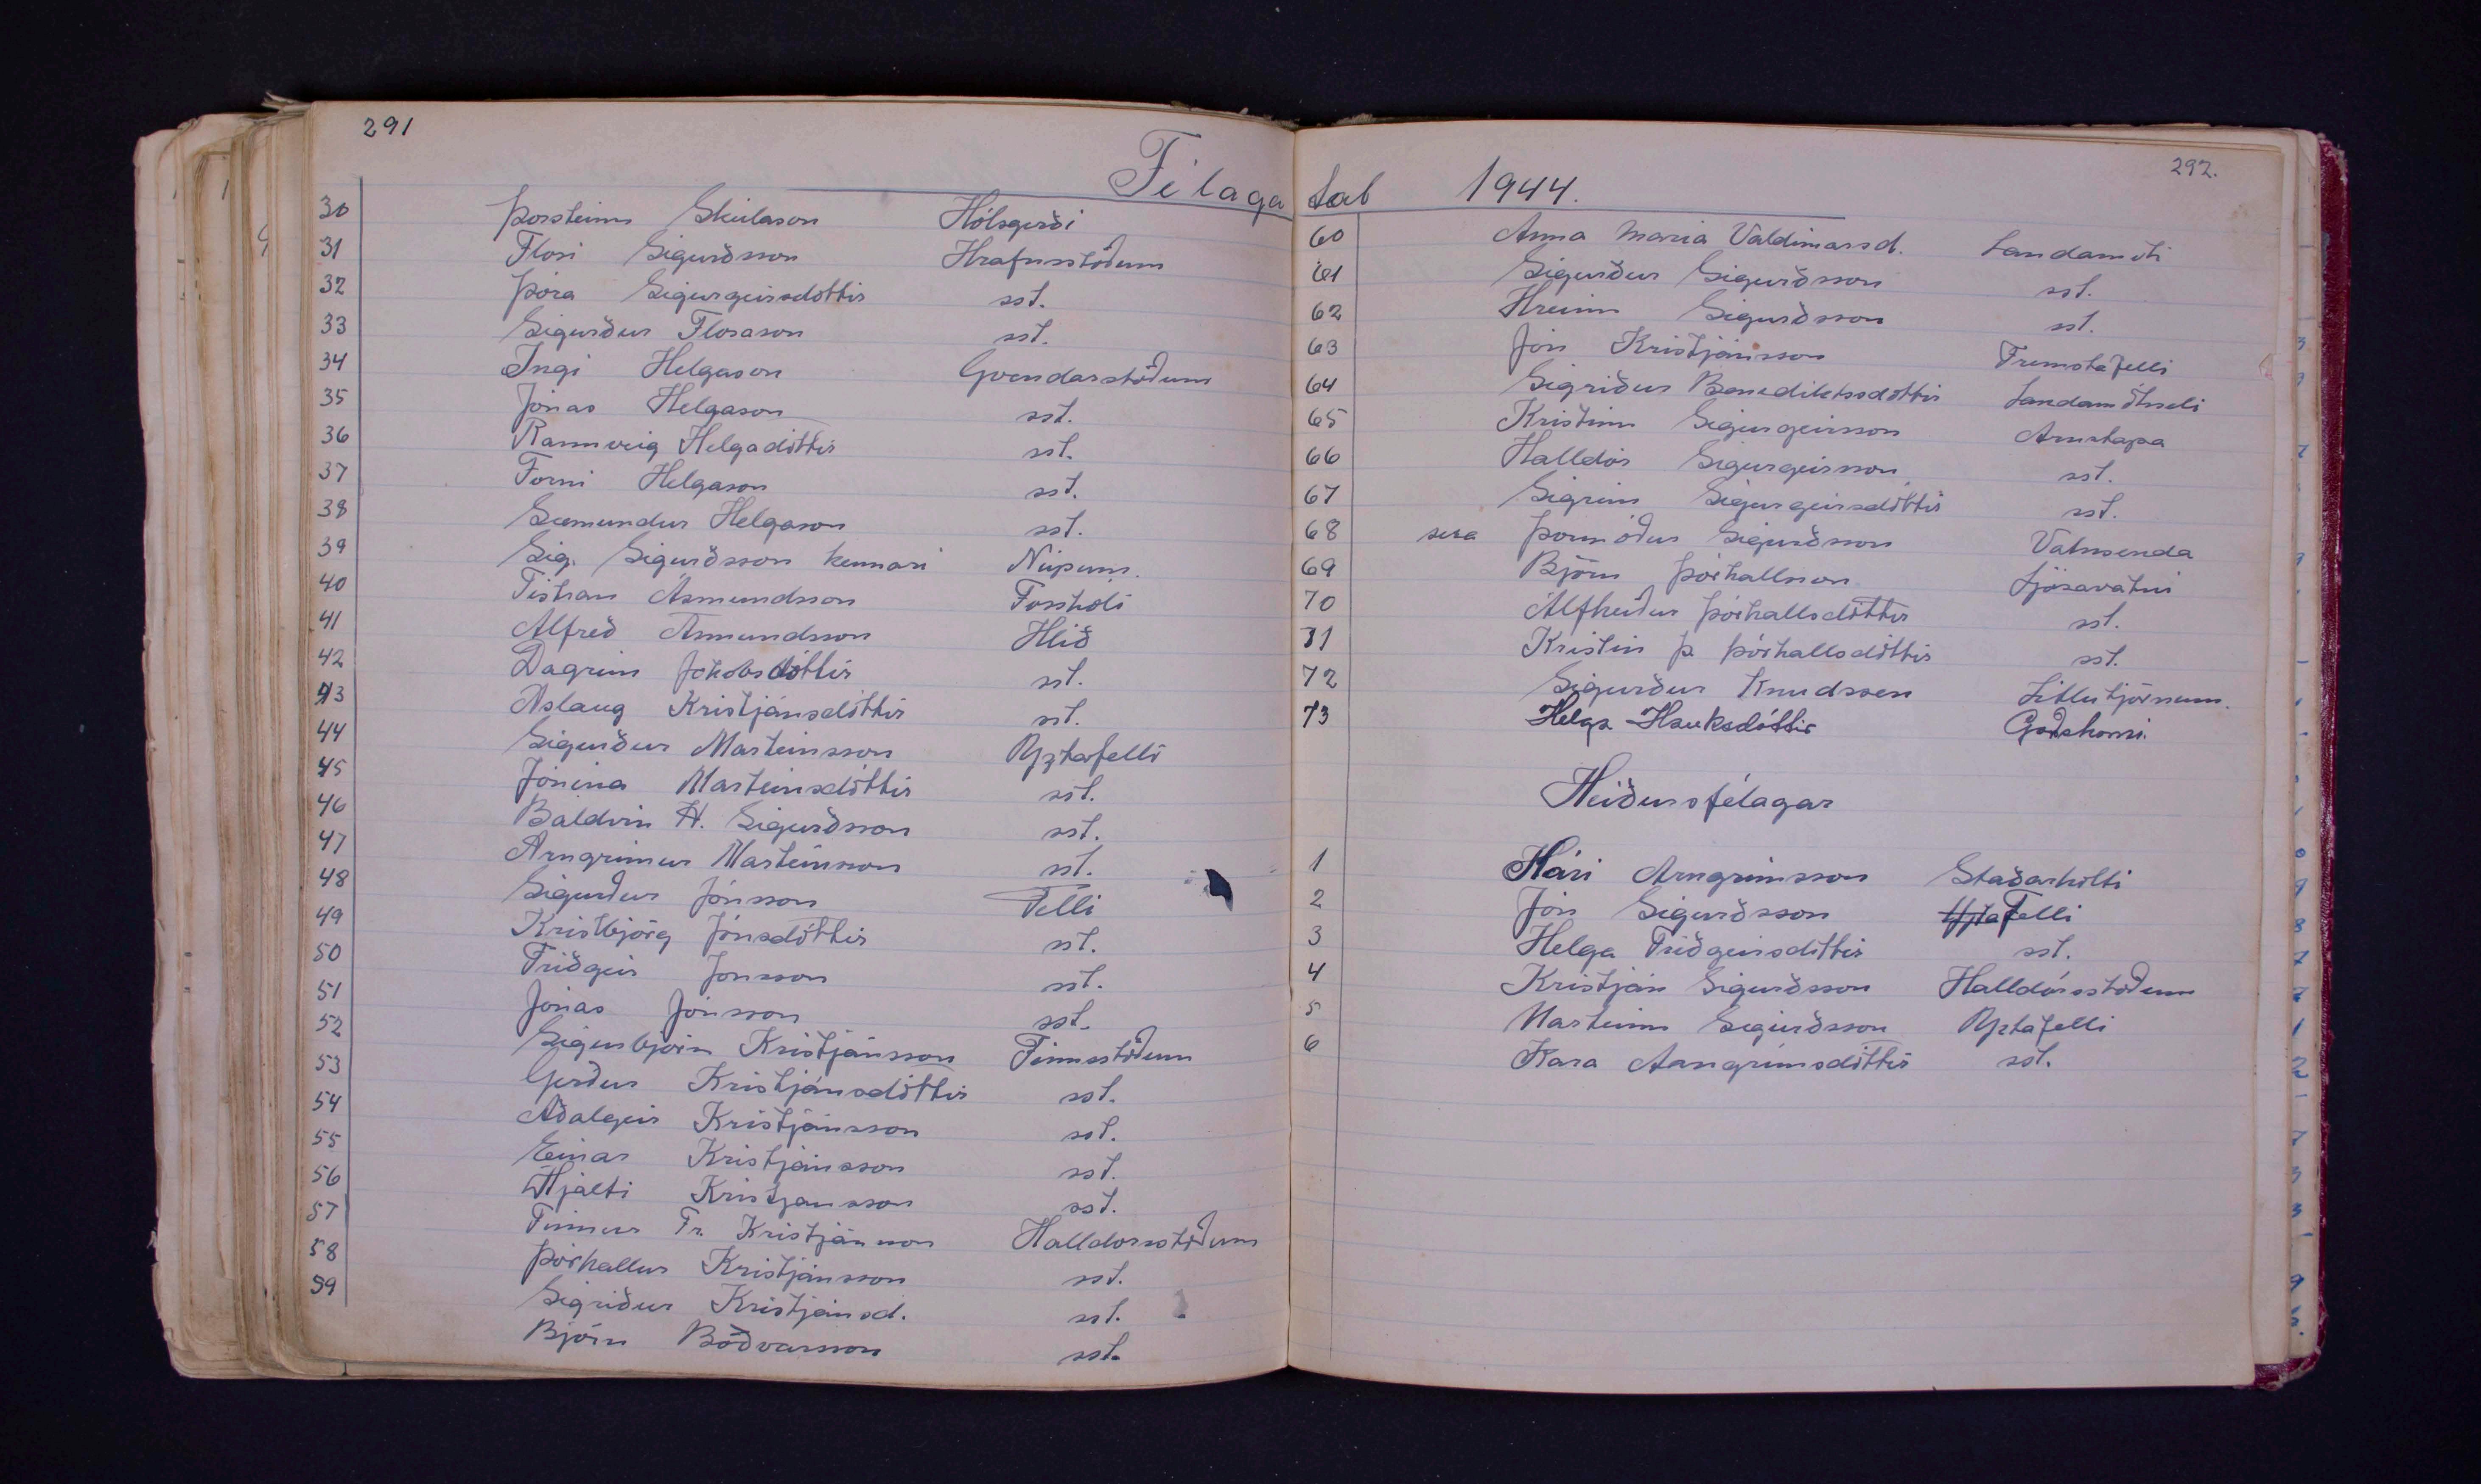 291
Félaga
30 Þorsteinn Skúlason Hólsgerði
31 Flosi Sigurðsson Hrafnsstöðum
32 Þóra Sigurgeirsdóttir sst.
33 Sigurður Flosason sst.
34 Ingi Helgason Gvendarstöðum
35 Jónas Helgason sst.
36 Rannveig Helgadóttir sst.
37 Forni Helgason sst.
38 Sæmundur Helgason sst.
39 Sig. Sigurðsson kennari Núpum.
40 Tistran Ásmundsson Fossholi
41 Alfreð Ásmundsson Hlíð
42 Dagrún Jakobsdóttir sst.
43 Áslaug Kristjánsdóttir sst.
44 Sigurður Marteinsson Yztafelli
45 Jónína Marteinsdóttir sst.
46 Baldvin H. Sigurðsson sst.
47 Arngrímur Marteinsson sst.
48 Sigurður Jónsson Felli
49 Kristbjörg Jónsdóttir sst.
50 Friðgeir Jónsson sst.
51 Jónas Jónsson sst.
52 Sigurbjörn Kristjánsson Finnsstöðum
53 Gerður Kristjánsdóttir sst.
54 Aðalgeir Kristjánsson sst.
55 Einar Kristjánsson sst.
56 Hjalti Kristjánsson sst.
57 Finnur Fr. Kristjánsson Halldorsstöðum
58 Þórhallur Kristjánsson sst.
59 Sigríður Kristjánsd. sst.
Björn Böðvarsson sst.
292.
tal 1944.
60 Anna María Valdimarsd. Landamóti
61 Sigurður Sigurðsson sst.
62 Hreinn Sigurðsson sst.
63 Jón Kristjánsson Fremstafelli
64 Sigríður Benediktssdóttir Landamótsseli
65 Kristinn Sigurgeirsson Arnstapa
66 Halldór Sigurgeirsson sst.
67 Sigrún Sigurgeirsdóttir sst.
68 séra Þormóður Sigurðsson Vatnsenda
69 Björn Þórhallsson Ljósavatni
70 Álfheiður Þórhallsdóttir sst.
71 Kristín Þ. Þórhallsdóttir sst.
72 Sigurður Knudssen Litlutjörnum.
73 Helga Hauksdóttir Garðshorni.
Heiðursfélagar
1 Kári Arngrímsson Staðarholti
2 Jón Sigurðsson Yzta Felli
3 Helga Friðgeirsdóttir sst.
4 Kristján Sigurðsson Halldórsstöðum
5 Marteinn Sigurðsson Yztafelli
6 Kara Arngrímsdóttir sst.